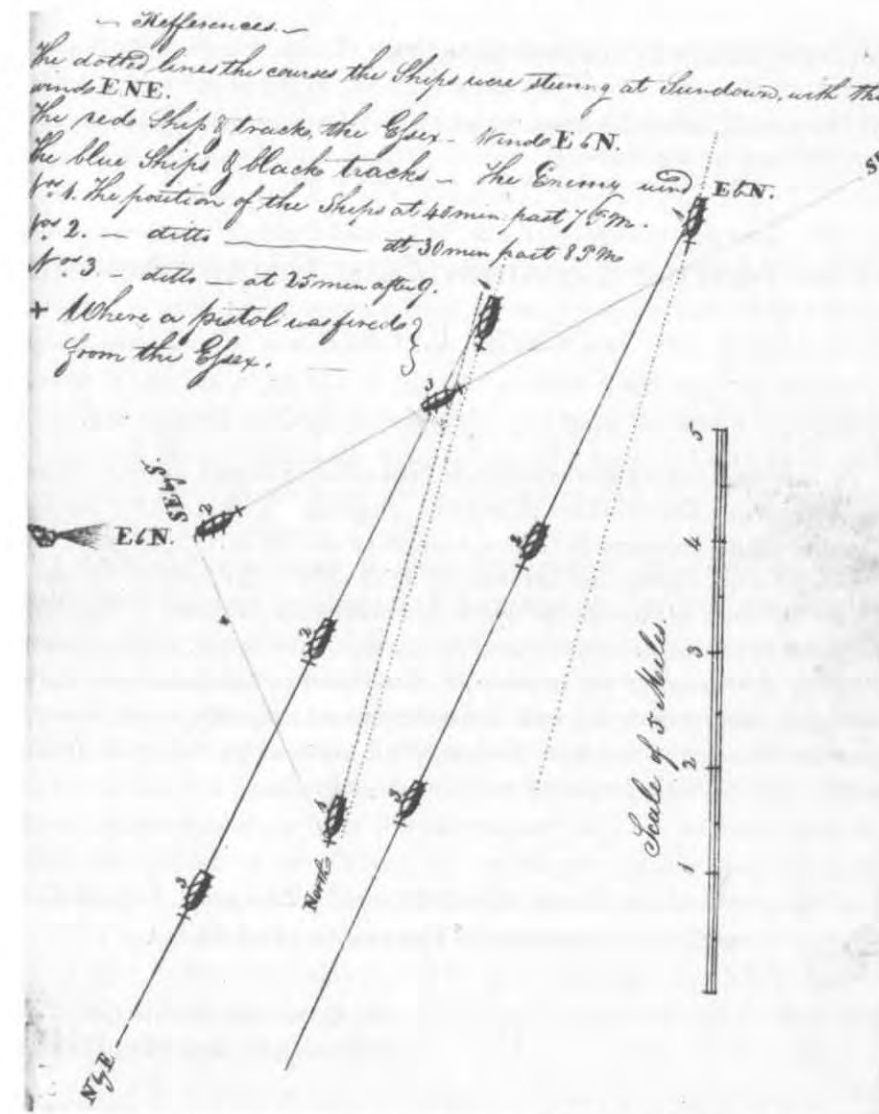 — Refferences. —
The dotted lines the courses the Ships were steering at Sundown, with the
winds ENE.
The reds Ship & tracks, the Essex — Winds E b N.
The blue Ships & black tracks — the Enemy wind E b N.
Nos 1. The position of the Ships at 40 min. past 7 P M
Nos 2. — ditto — at 30 min past 8 P M
Nos 3 — ditto — at 25 min after 9.
+ Where a pistol was fired }
from the Essex.
1
1
3
SE b S.
2
E b N.
2
2
5
4
3
2
1
Scale of 5 Miles
3
1
North
3
N b E